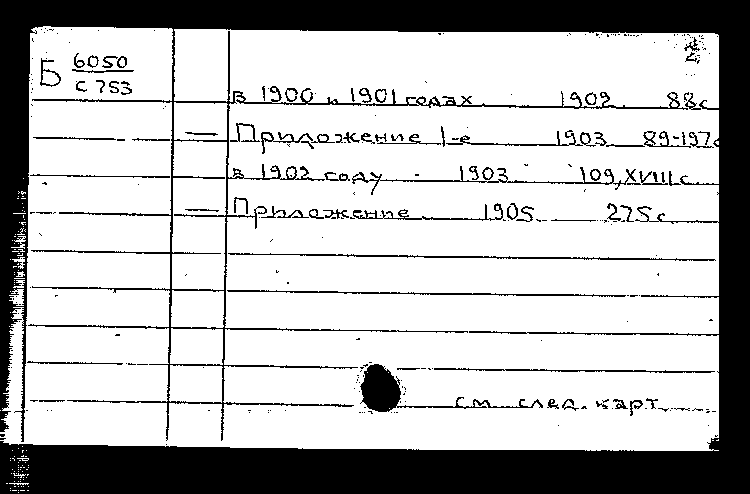 2
Б 6050
С 753
в 1900 и 1901 годах 1902 88с
— Приложение 1-е 1903 89-197с
в 1902 году - 1903 109, XVIII с.
— Приложение 1905 275с
см. след. карт.